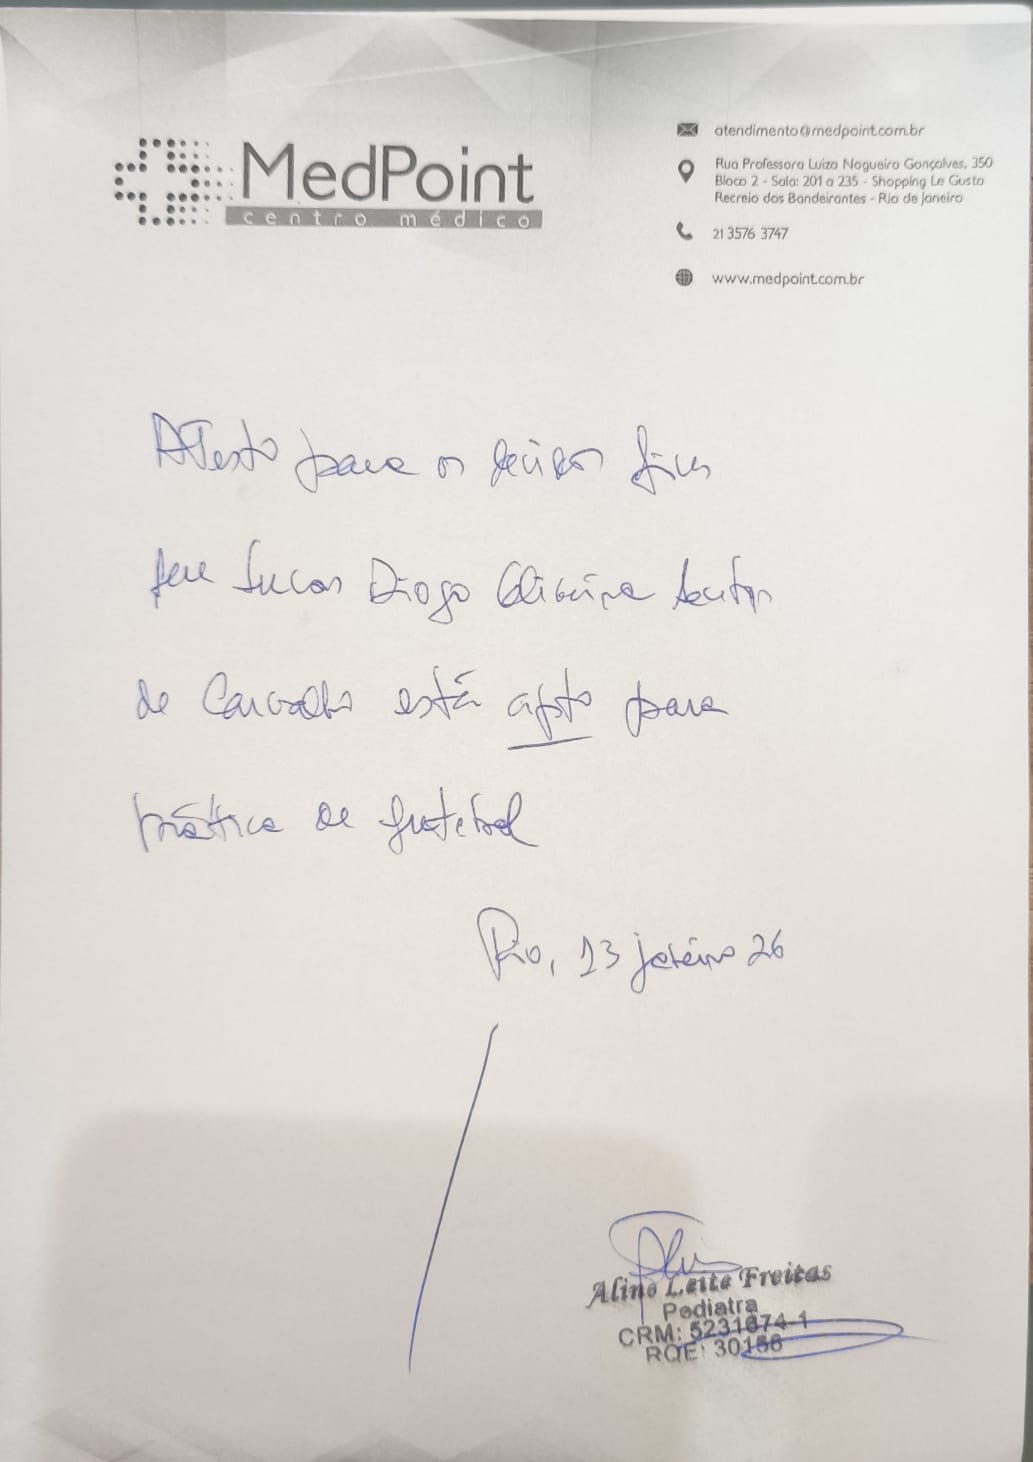 MedPoint
centro médico
atendimento@medpoint.com.br
Rua Professora Luiza Nogueira Gonçalves, 350
Bloco 2 - Sala: 201 a 235 - Shopping Le Gusta
Recreio dos Bandeirantes - Rio de Janeiro
21 3576 3747
www.medpoint.com.br
Atesto para os devidos fins
que Lucas Diogo Oliveira
de Carvalho está apto para
prática de futebol
Rio, 13 janeiro 26
Leite Freitas
Pediatra
CRM: 5231674-1
RQE: